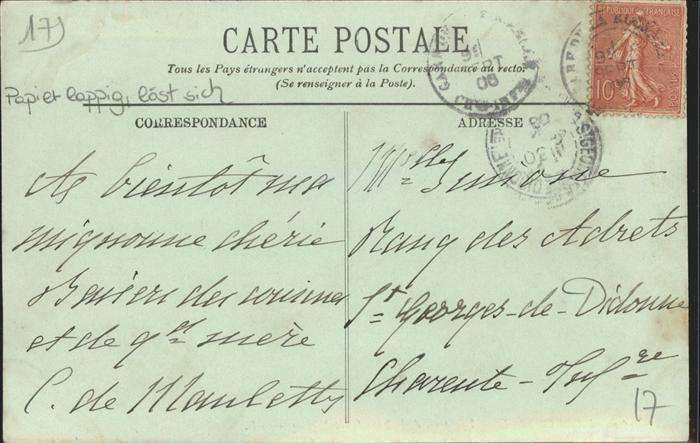 179
CARTE POSTALE
Tous les Pays étrangers n'acceptent pas la Correspondance au recto.
(Se renseigner à la Poste).
Papier lappig, löst sich
CORRESPONDANCE
A bientôt ma
mignonne chérie
Baisers des cousines
et de gd mère
C. de Maubetty
ADRESSE
Mlle Simone
Rang des Adrets
St Georges-de-Didonne
Charente-Infre
17
REPUBLIQUE FRANÇAISE
10